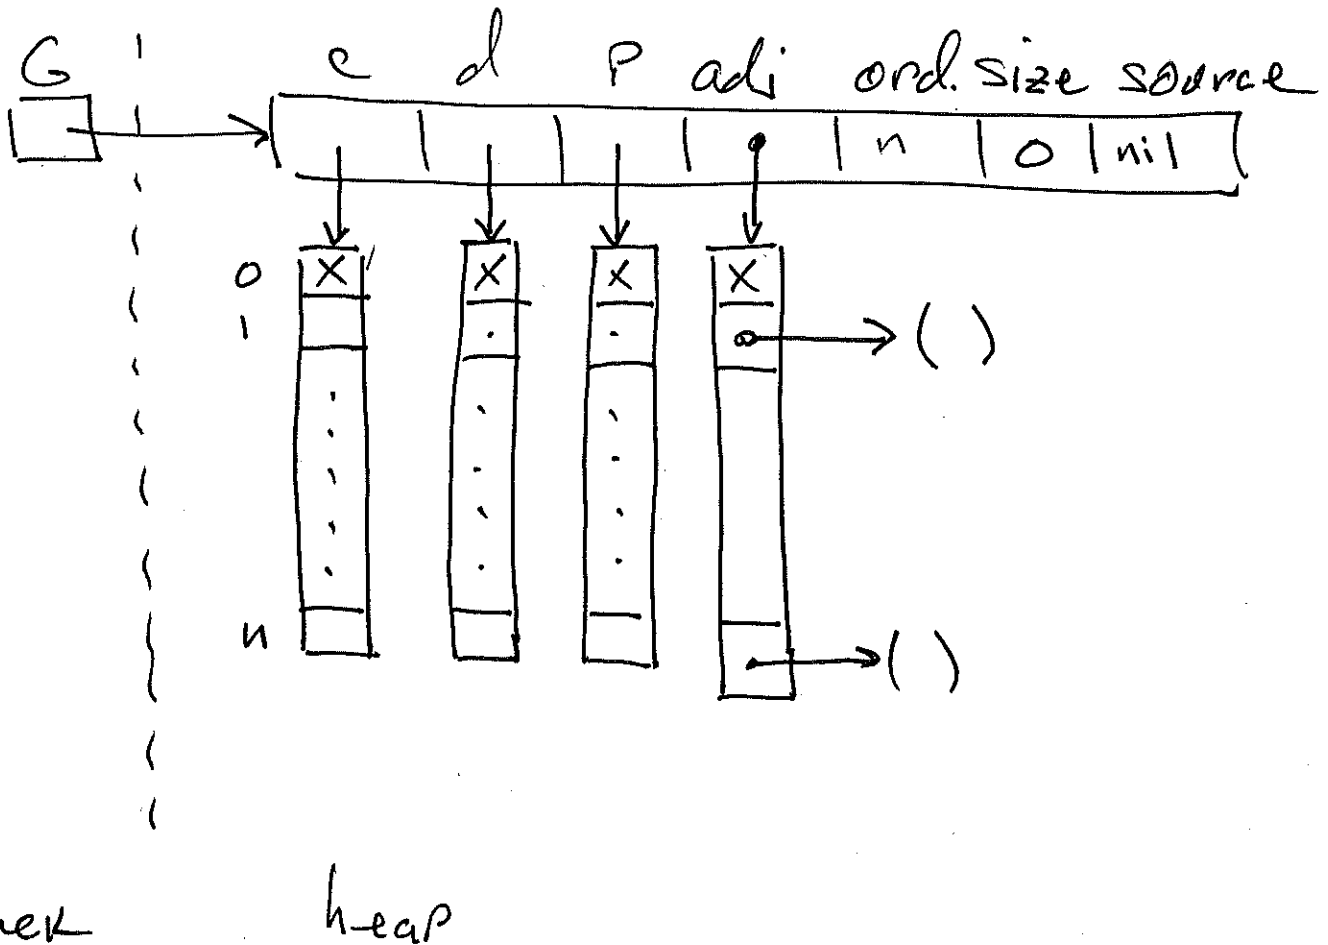 G c d P adj ord. size source
n 0 nil
0 X X X X
1 ( )
n ( )
heap